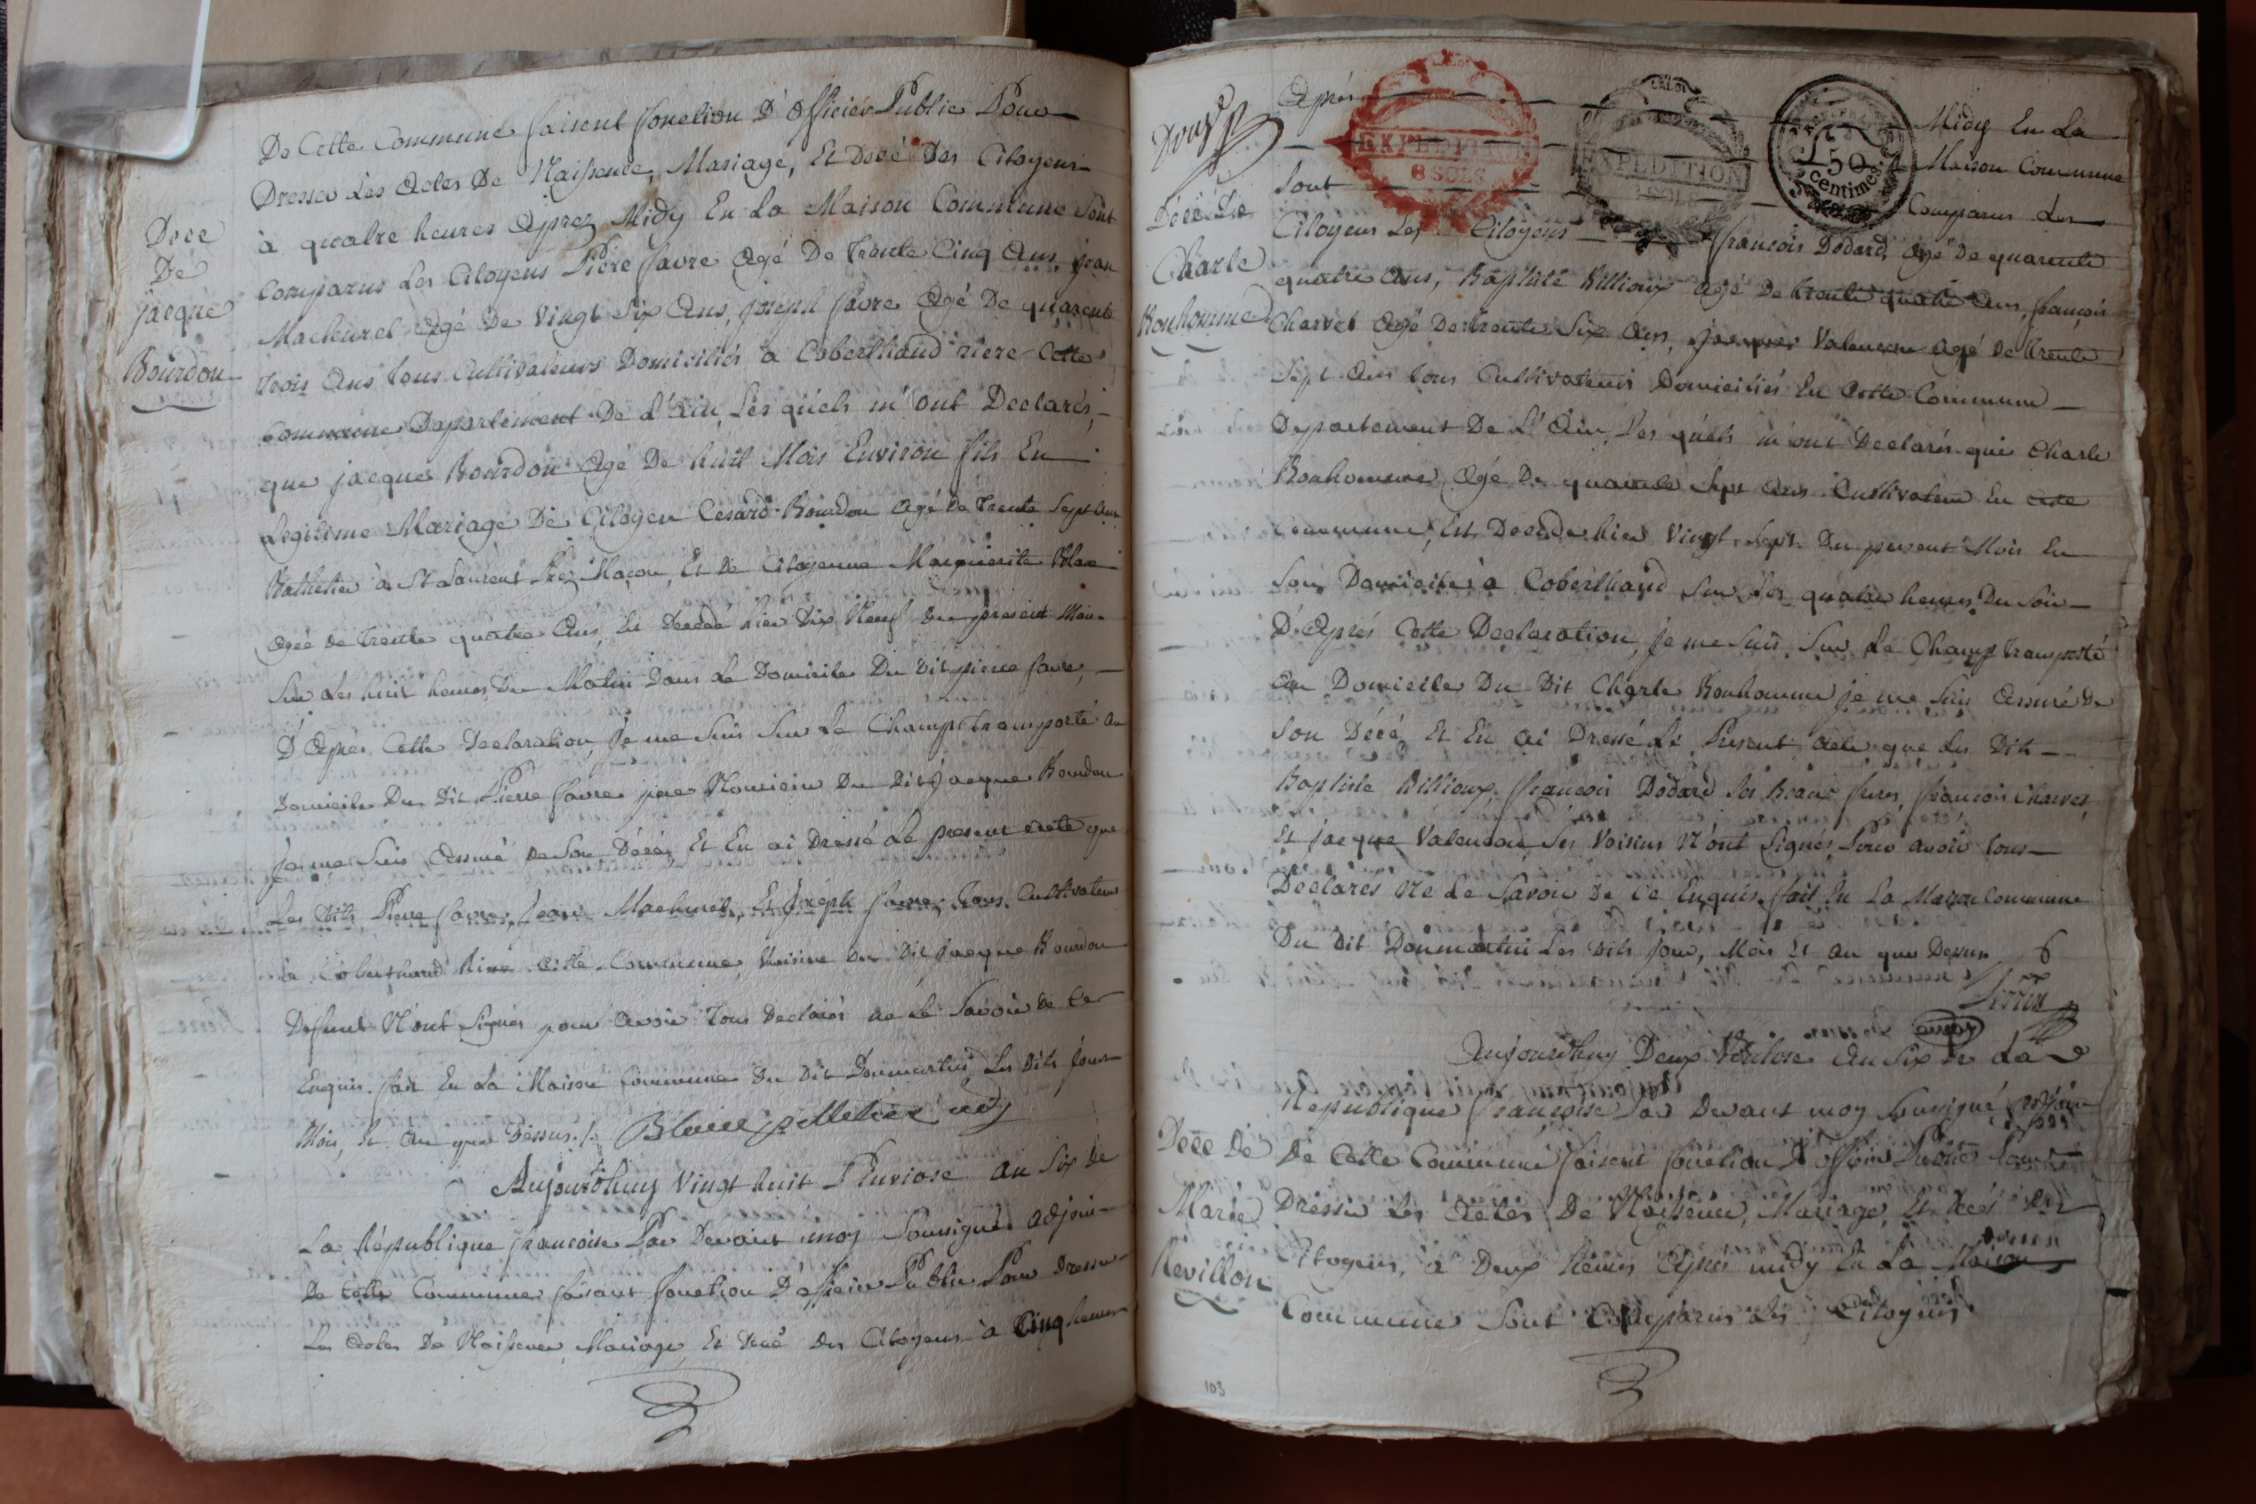 De Cette Commune faisent fonction D'officier Public Pour
Dresser Les Actes De Naissence, Mariage, Et Décé Des Citoyens
à quatre heures Après Midy En La Maison Commune Sont
Comparus Les Citoyens Piere favre Agé De trente Cinq Ans, jean
Machurel Agé De Vingt Six Ans, joseph favre Agé De quarente
trois Ans tous Cultivateurs Domiciliés à Coberthaud riere Cette
Commune Departement De L'ain, Les quels m'ont Declarés,
que jacque Bourdon Agé De huit Mois Environ fils En
Legitime Mariage De Citoyen Cesard Bourdon Agé De Trente Sept Ans
Battelier à St Laurent Lès Macon, Et De Citoyenne Marguerite
Agée De Trente quatre Ans, Est Decedé hier Dix Neuf du present Mois
Sur Les huit heures Du Matin Dans Le Domicile Du Dit pierre favre,
D'Après Cette Declaration, Je me Suis Sur Le Champ transporté Au
Domicile Du Dit Pierre favre pere Nouricier Du Dit jacque Bourdon
je me Suis Assuré De Son Décé, Et En ai Dressé Le present Acte que
Les Dits Pierre favre, Jean Machurel, Et Joseph favre, Tous Cultivateurs
à Coberthaud Rière Cette Commune, Voisins Du Dit Jacque Bourdon
Defunt N'ont Signés pour Avoir Tous Declarés ne Le Savoir De Ce
Enquis. fait En La Maison Commune Du Dit Donmartin Les Dits Jour
Mois, Et An que Dessus./.
Aujourdhuy Vingt huit Pluviose an Six De
La République francoise Par Devant moy Soussigné adjoin
De Cette Commune faisant fonction D'officier Public Pour Dresser
Les Actes De Naissence, Mariage Et Décé Des Citoyens à Cinq heures
Décé
De
jacque
Bourdon
Après Midy En La
Maison Commune
Sont Comparus Les
Citoyens Les Citoyens francois Dodard, Agé De quarente
quatre Ans, Baptiste Billioux Agé De trente quatre Ans, francois
Charvet Agé De trente Six Ans, jacques Valencon Agé De trente
Sept Ans tous Cultivateurs Domiciliés En Cette Commune
Departement De L'Ain, Les quels m'ont Declarés que Charle
Bonhomme Agé De quarente Sept Ans Cultivateur En Cette
Commune, Est Decedé hier Vingt Sept Du present Mois En
Son Domicile à Coberthaud Sur Les quatre heures Du Soir
D'Après Cette Declaration, je me Suis Sur Le Champ transporté
Au Domicile Du Dit Charle Bonhomme je me Suis Assuré De
Son Décé, Et En ai Dressé Le Present Acte que Les Dits
Baptiste Billioux, francois Dodard Ses Beau freres, francois Charvet,
Et jacque Valencon Ses Voisins N'ont Signés Pour avoir tous
Déclarés Ne Le Savoir De Ce Enquis. fait En La Maison Commune
Du Dit Donmartin Les Dits Jour, Mois Et An que Dessus
Aujourdhuy Deux Ventose An Six De La
République francoise Par Devant moy Soussigné
De Cette Commune faisent fonction D'officier Public Pour
Dresser Les Actes De Naissence, Mariage, Et Décés Des
Citoyens, à Deux heures Après midy En La Maison
Commune Sont Comparus Les Citoyens
Décé De
Charle
Bonhomme
Décé De
Marie
Revillon
EXPEDITION
8 SOLS
EXPEDITION
50
centimes
103